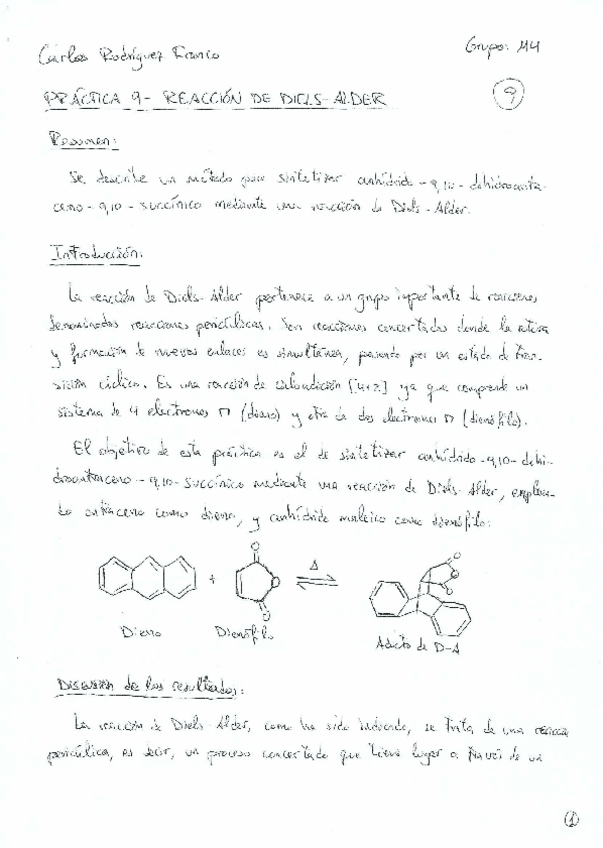 Carlos Rodríguez Franco
Grupo: M4
PRÁCTICA 9- REACCIÓN DE DIELS-ALDER
9
Resumen:
Se describe un método para sintetizar anhídrido-9,10-dehidroantra-
ceno-9,10-succínico mediante una reacción de Diels-Alder.
Introducción:
La reacción de Diels-Alder pertenece a un grupo importante de reacciones
denominadas reacciones pericíclicas. Son reacciones concertadas donde la rotura
y formación de nuevos enlaces es simultánea, pasando por un estado de tran-
sición cíclico. Es una reacción de cicloadición [4+2] ya que comprende un
sistema de 4 electrones π (dieno) y otro de dos electrones π (dienófilo).
El objetivo de esta práctica es el de sintetizar anhídrido-9,10-dehi-
droantraceno-9,10-succínico mediante una reacción de Diels-Alder, emplean-
do antraceno como dieno, y anhídrido maleico como dienófilo:
O
O
O
+
Δ
O
O
O
Dieno
Dienófilo
Aducto de D-A
Discusión de los resultados:
La reacción de Diels-Alder, como ha sido indicado, se trata de una reacción
pericíclica, es decir, un proceso concertado que tiene lugar a través de un
1